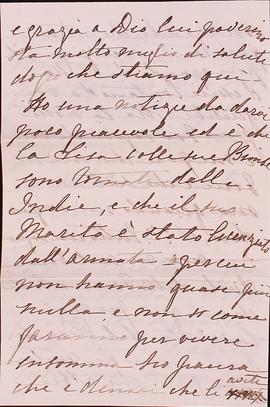 e grazia a Dio lui poverino
sta molto meglio di salute
dopo che stiamo qui
Ho una notizia da darvi
poco piacevole ed è che
la Lisa colle sue Bimbe
sono tornate dalle
Indie, e che il suo
Marito è stato licenziato
dall'armata perciò
non hanno quasi più
nulla e non so come
faranno per vivere
insomma ho paura
che i denari che li avete